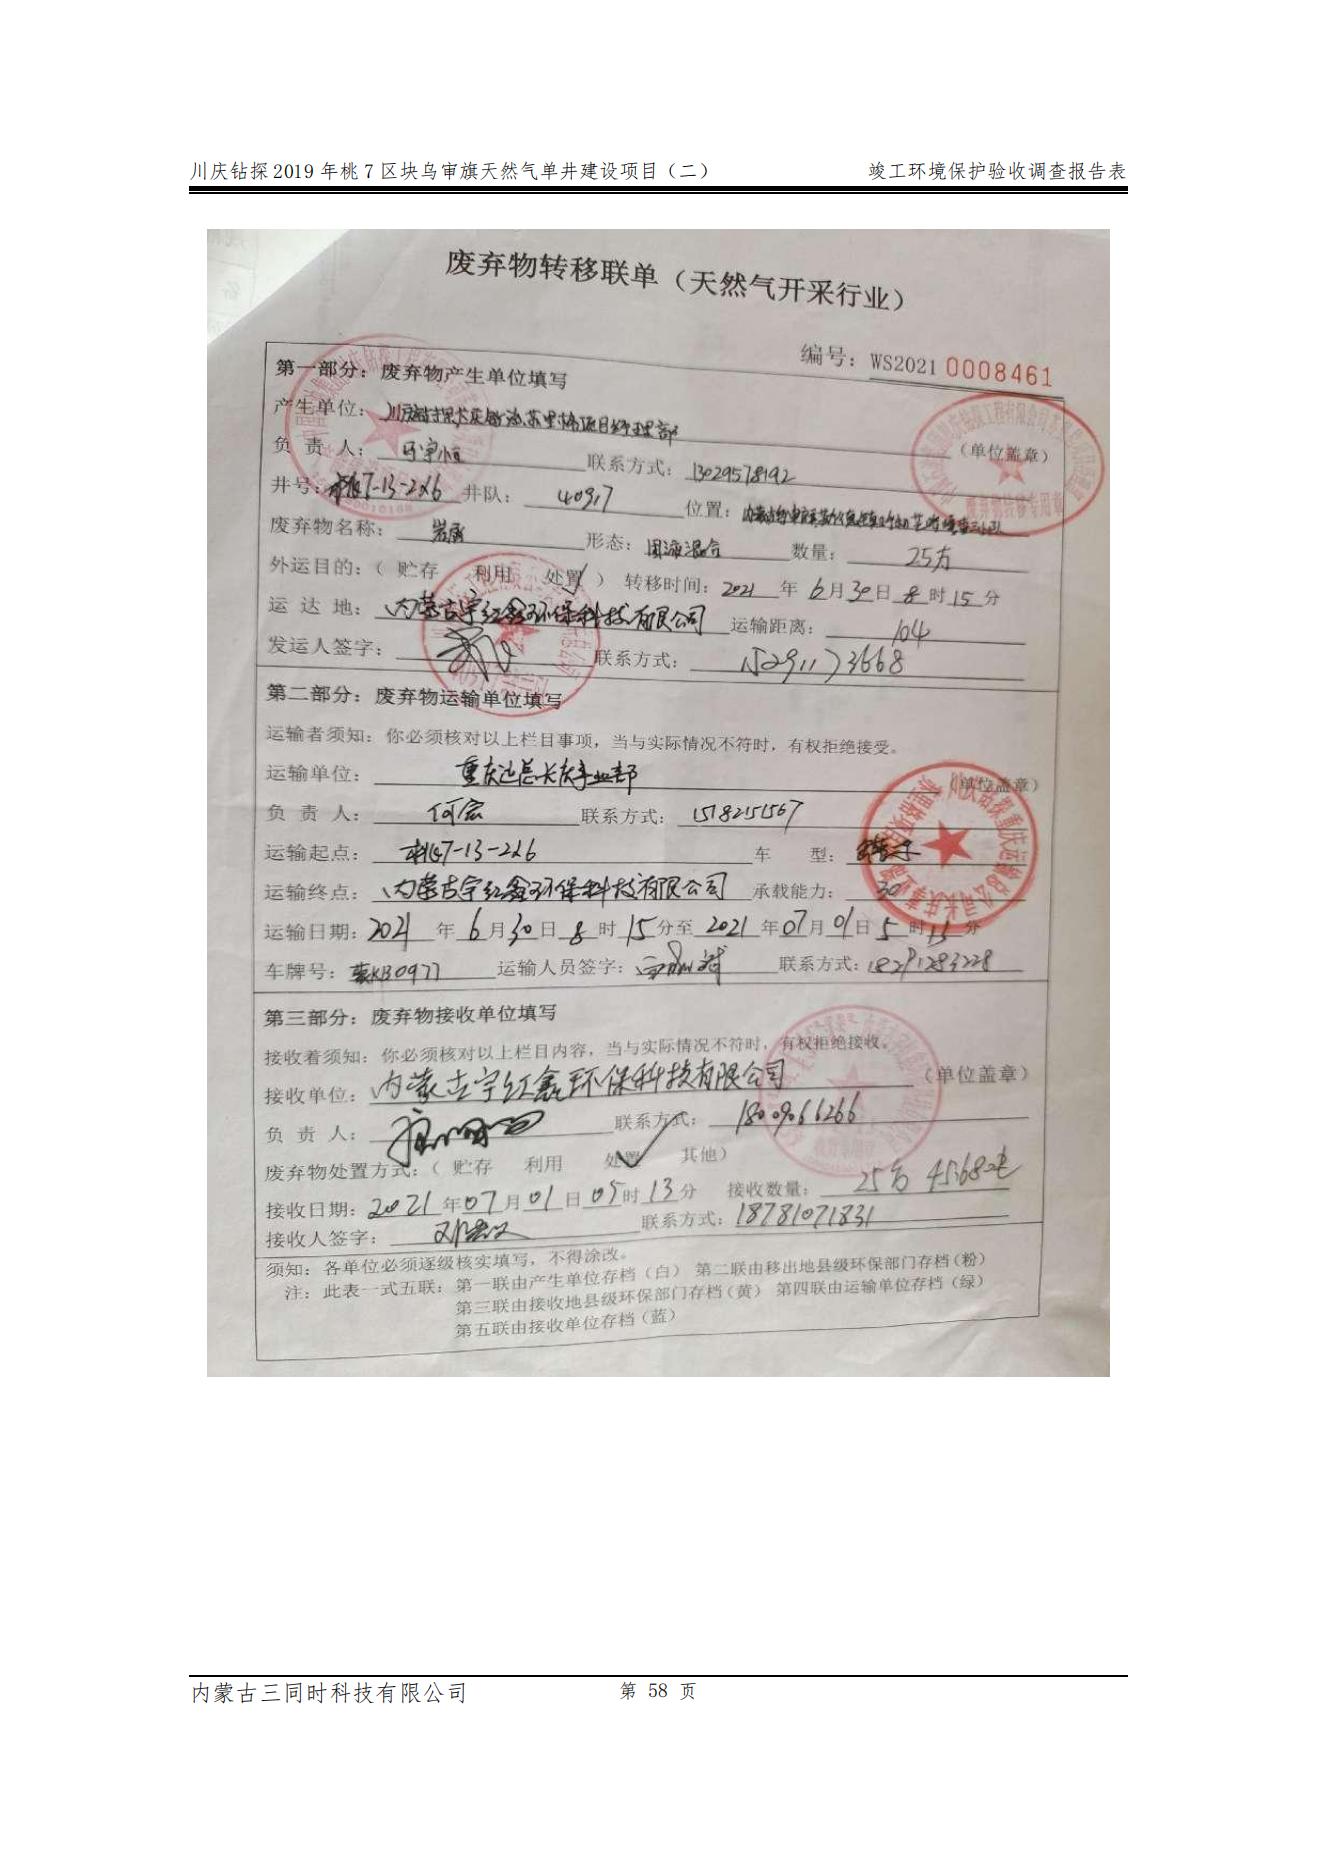 川庆钻探2019年桃7区块乌审旗天然气单井建设项目（二） 竣工环境保护验收调查报告表
废弃物转移联单（天然气开采行业）
编号：WS2021 0008461
第一部分：废弃物产生单位填写
产生单位：
（单位盖章）
负 责 人： 联系方式：13029578192
井号：桃7-13-2X6 井队：40917 位置：
废弃物名称：岩屑 形态：固液混合 数量：25方
外运目的：（ 贮存 利用 处置 ） 转移时间：2021 年 6 月 30 日 8 时 15 分
运 达 地：内蒙古宇红鑫环保科技有限公司 运输距离：104
发运人签字： 联系方式：15291173668
第二部分：废弃物运输单位填写
运输者须知：你必须核对以上栏目事项，当与实际情况不符时，有权拒绝接受。
运输单位：重庆运总长庆事业部 （单位盖章）
负 责 人：何宏 联系方式：15182151567
运输起点：桃7-13-2X6 车 型：
运输终点：内蒙古宇红鑫环保科技有限公司 承载能力：30
运输日期：2021 年 6 月 30 日 8 时 15 分至 2021 年 07 月 01 日 5 时 13 分
车牌号：蒙KB0977 运输人员签字： 联系方式：18291283228
第三部分：废弃物接收单位填写
接收着须知：你必须核对以上栏目内容，当与实际情况不符时，有权拒绝接收。
接收单位：内蒙古宇红鑫环保科技有限公司 （单位盖章）
负 责 人： 联系方式：18009066266
废弃物处置方式：（ 贮存 利用 处置 其他）
接收日期：2021 年 07 月 01 日 05 时 13 分 接收数量：25方 45.68吨
接收人签字： 联系方式：18781071831
须知：各单位必须逐级核实填写，不得涂改。
注：此表一式五联：第一联由产生单位存档（白） 第二联由移出地县级环保部门存档（粉）
第三联由接收地县级环保部门存档（黄） 第四联由运输单位存档（绿）
第五联由接收单位存档（蓝）
内蒙古三同时科技有限公司 第 58 页